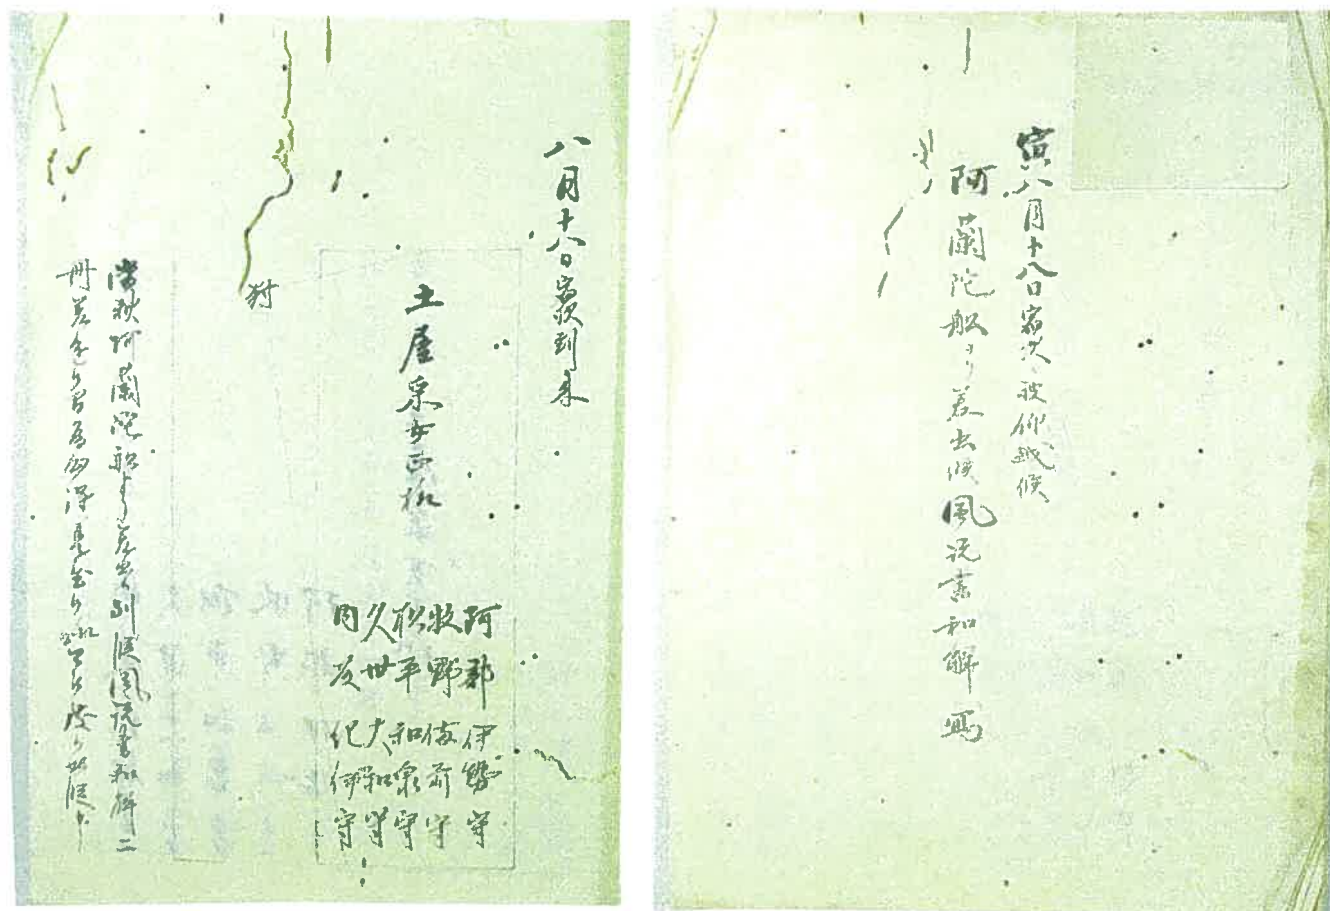 寅八月十八日宿次被仰越候
阿蘭陀船より差出候風説書和解写
八月十八日宿次到来
土屋采女正様
阿部伊勢守
牧野備前守
松平和泉守
久世大和守
内藤紀伊守
当秋阿蘭陀船より差出候別段風説書和解二
冊差